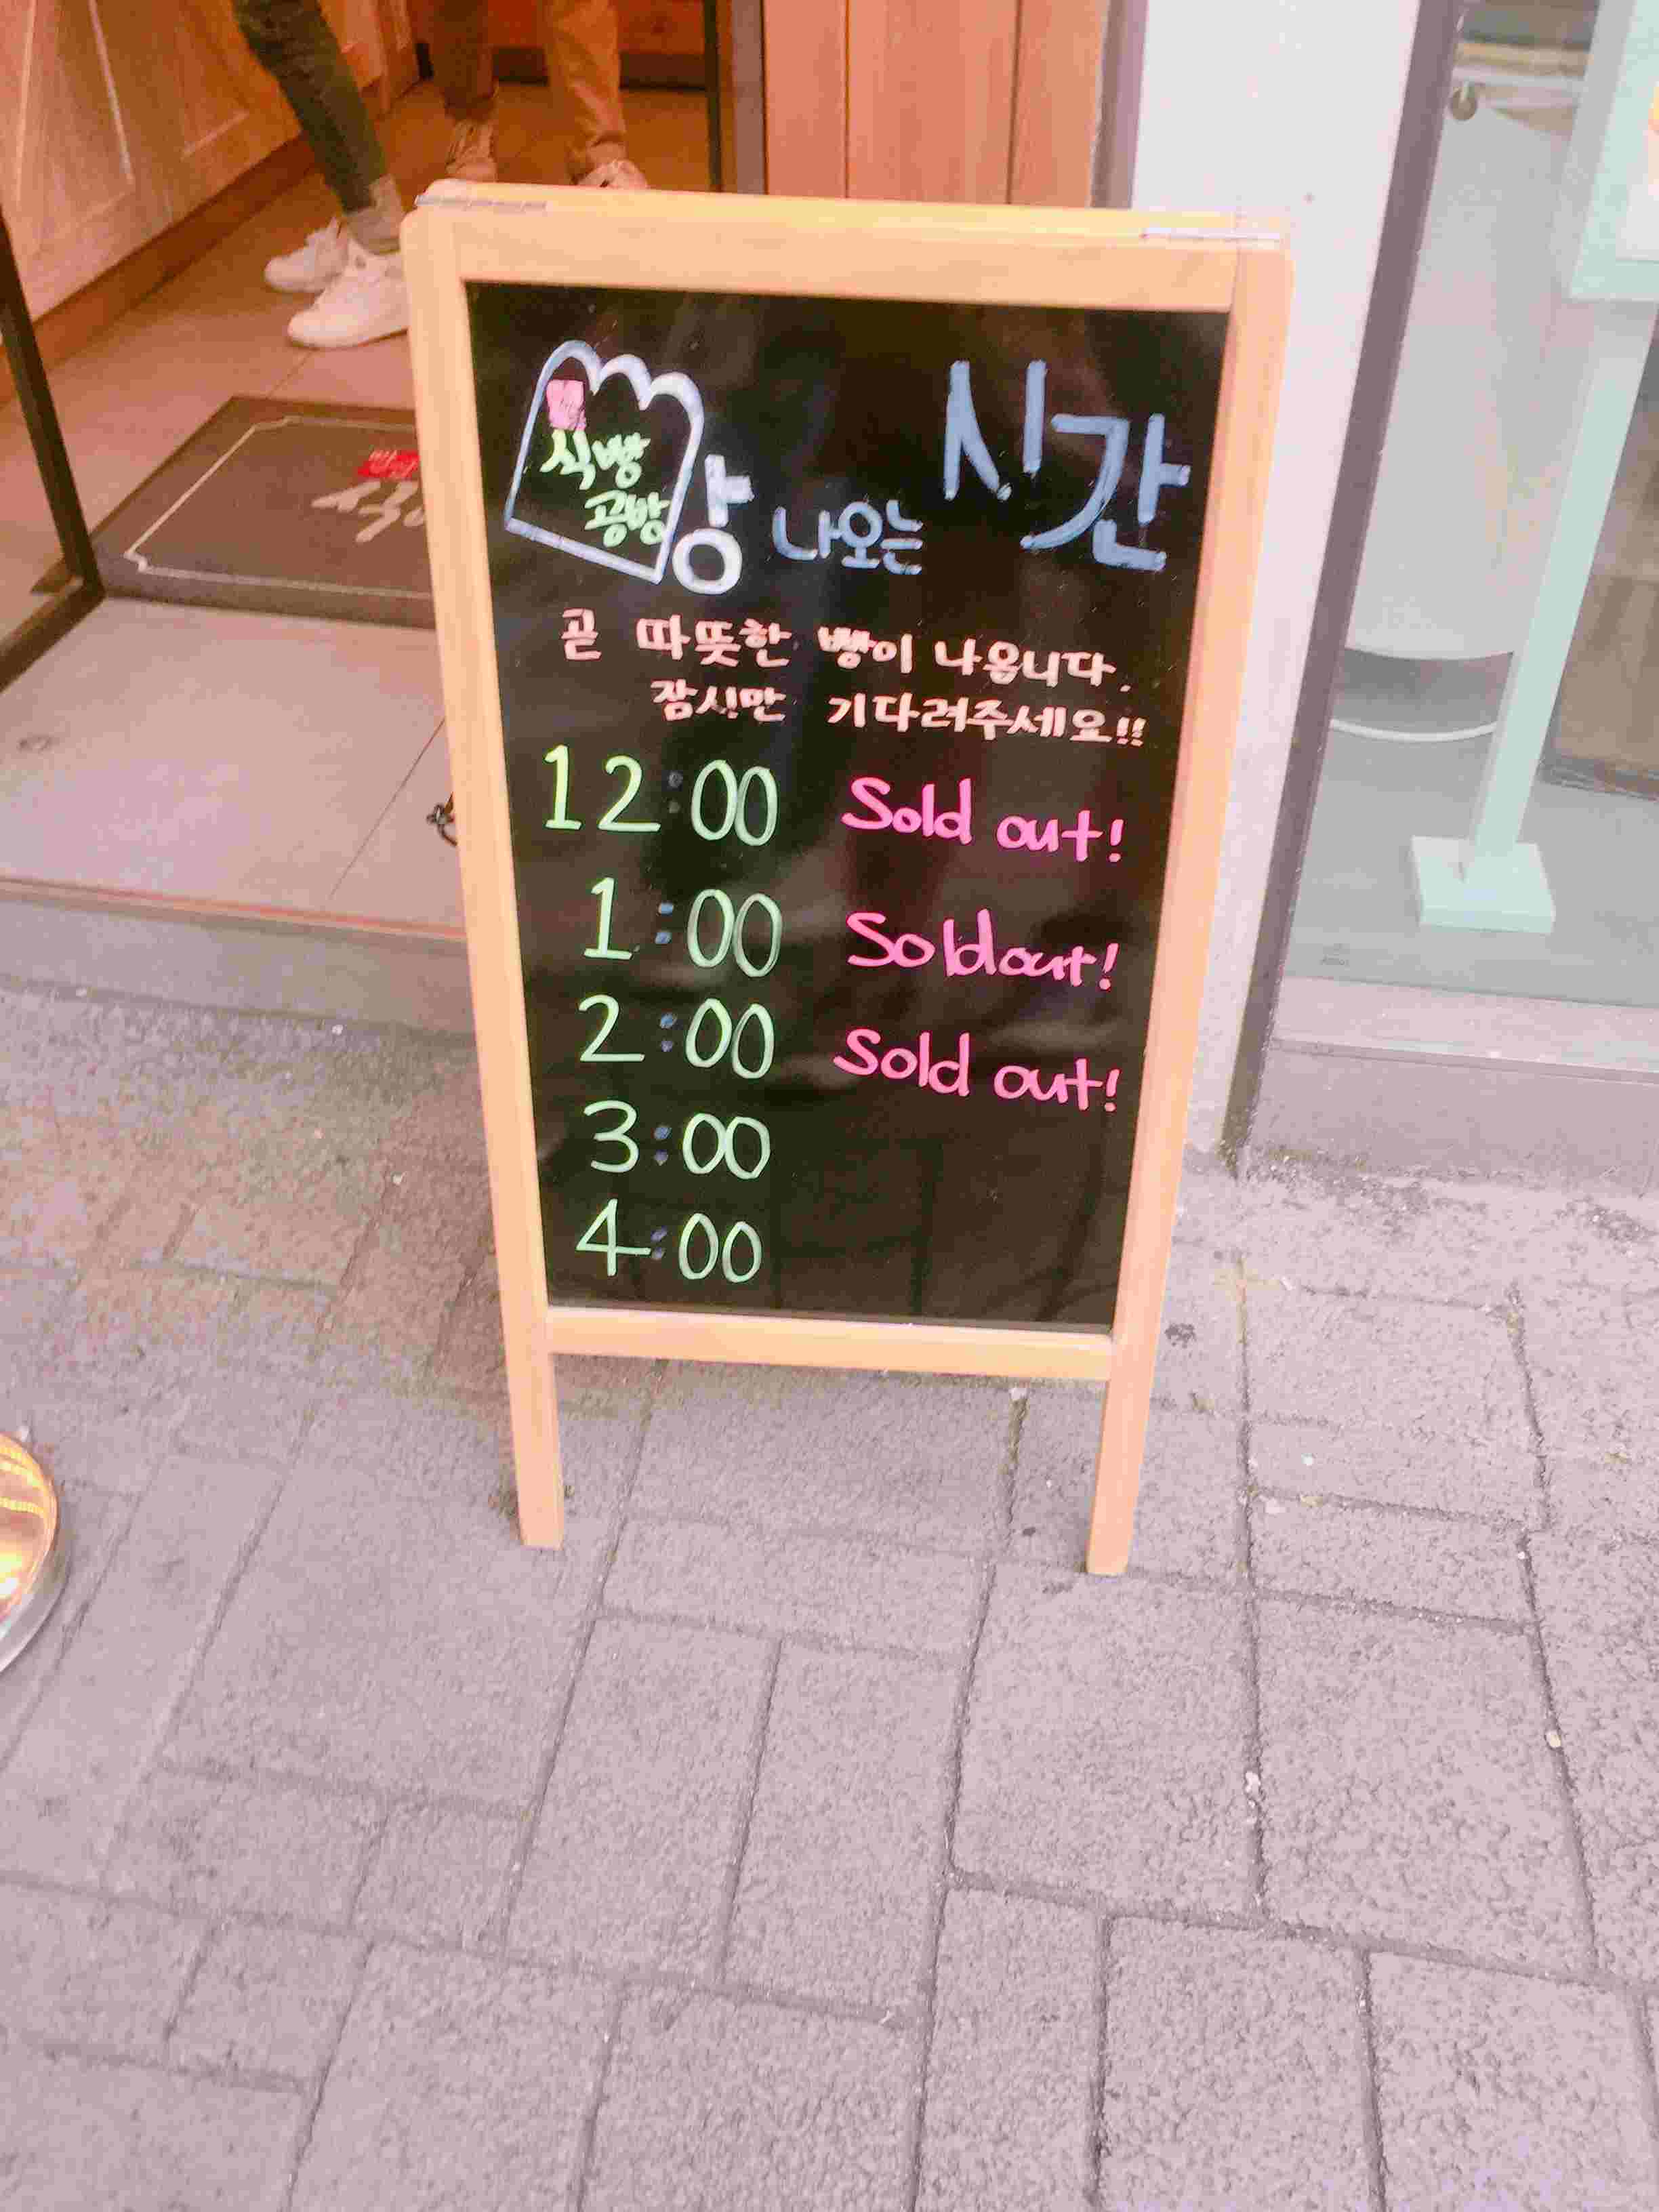 식빵
공방
빵 나오는 시간
곧 따뜻한 빵이 나옵니다.
잠시만 기다려주세요!!
12:00 Sold out!
1:00 Soldout!
2:00 Sold out!
3:00
4:00